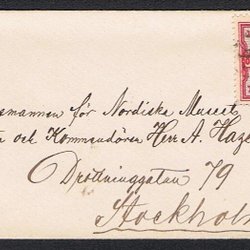 smannen för Nordiska Museet
och Kommendören Herr A. Haze
Drottninggatan 79
Stockhol